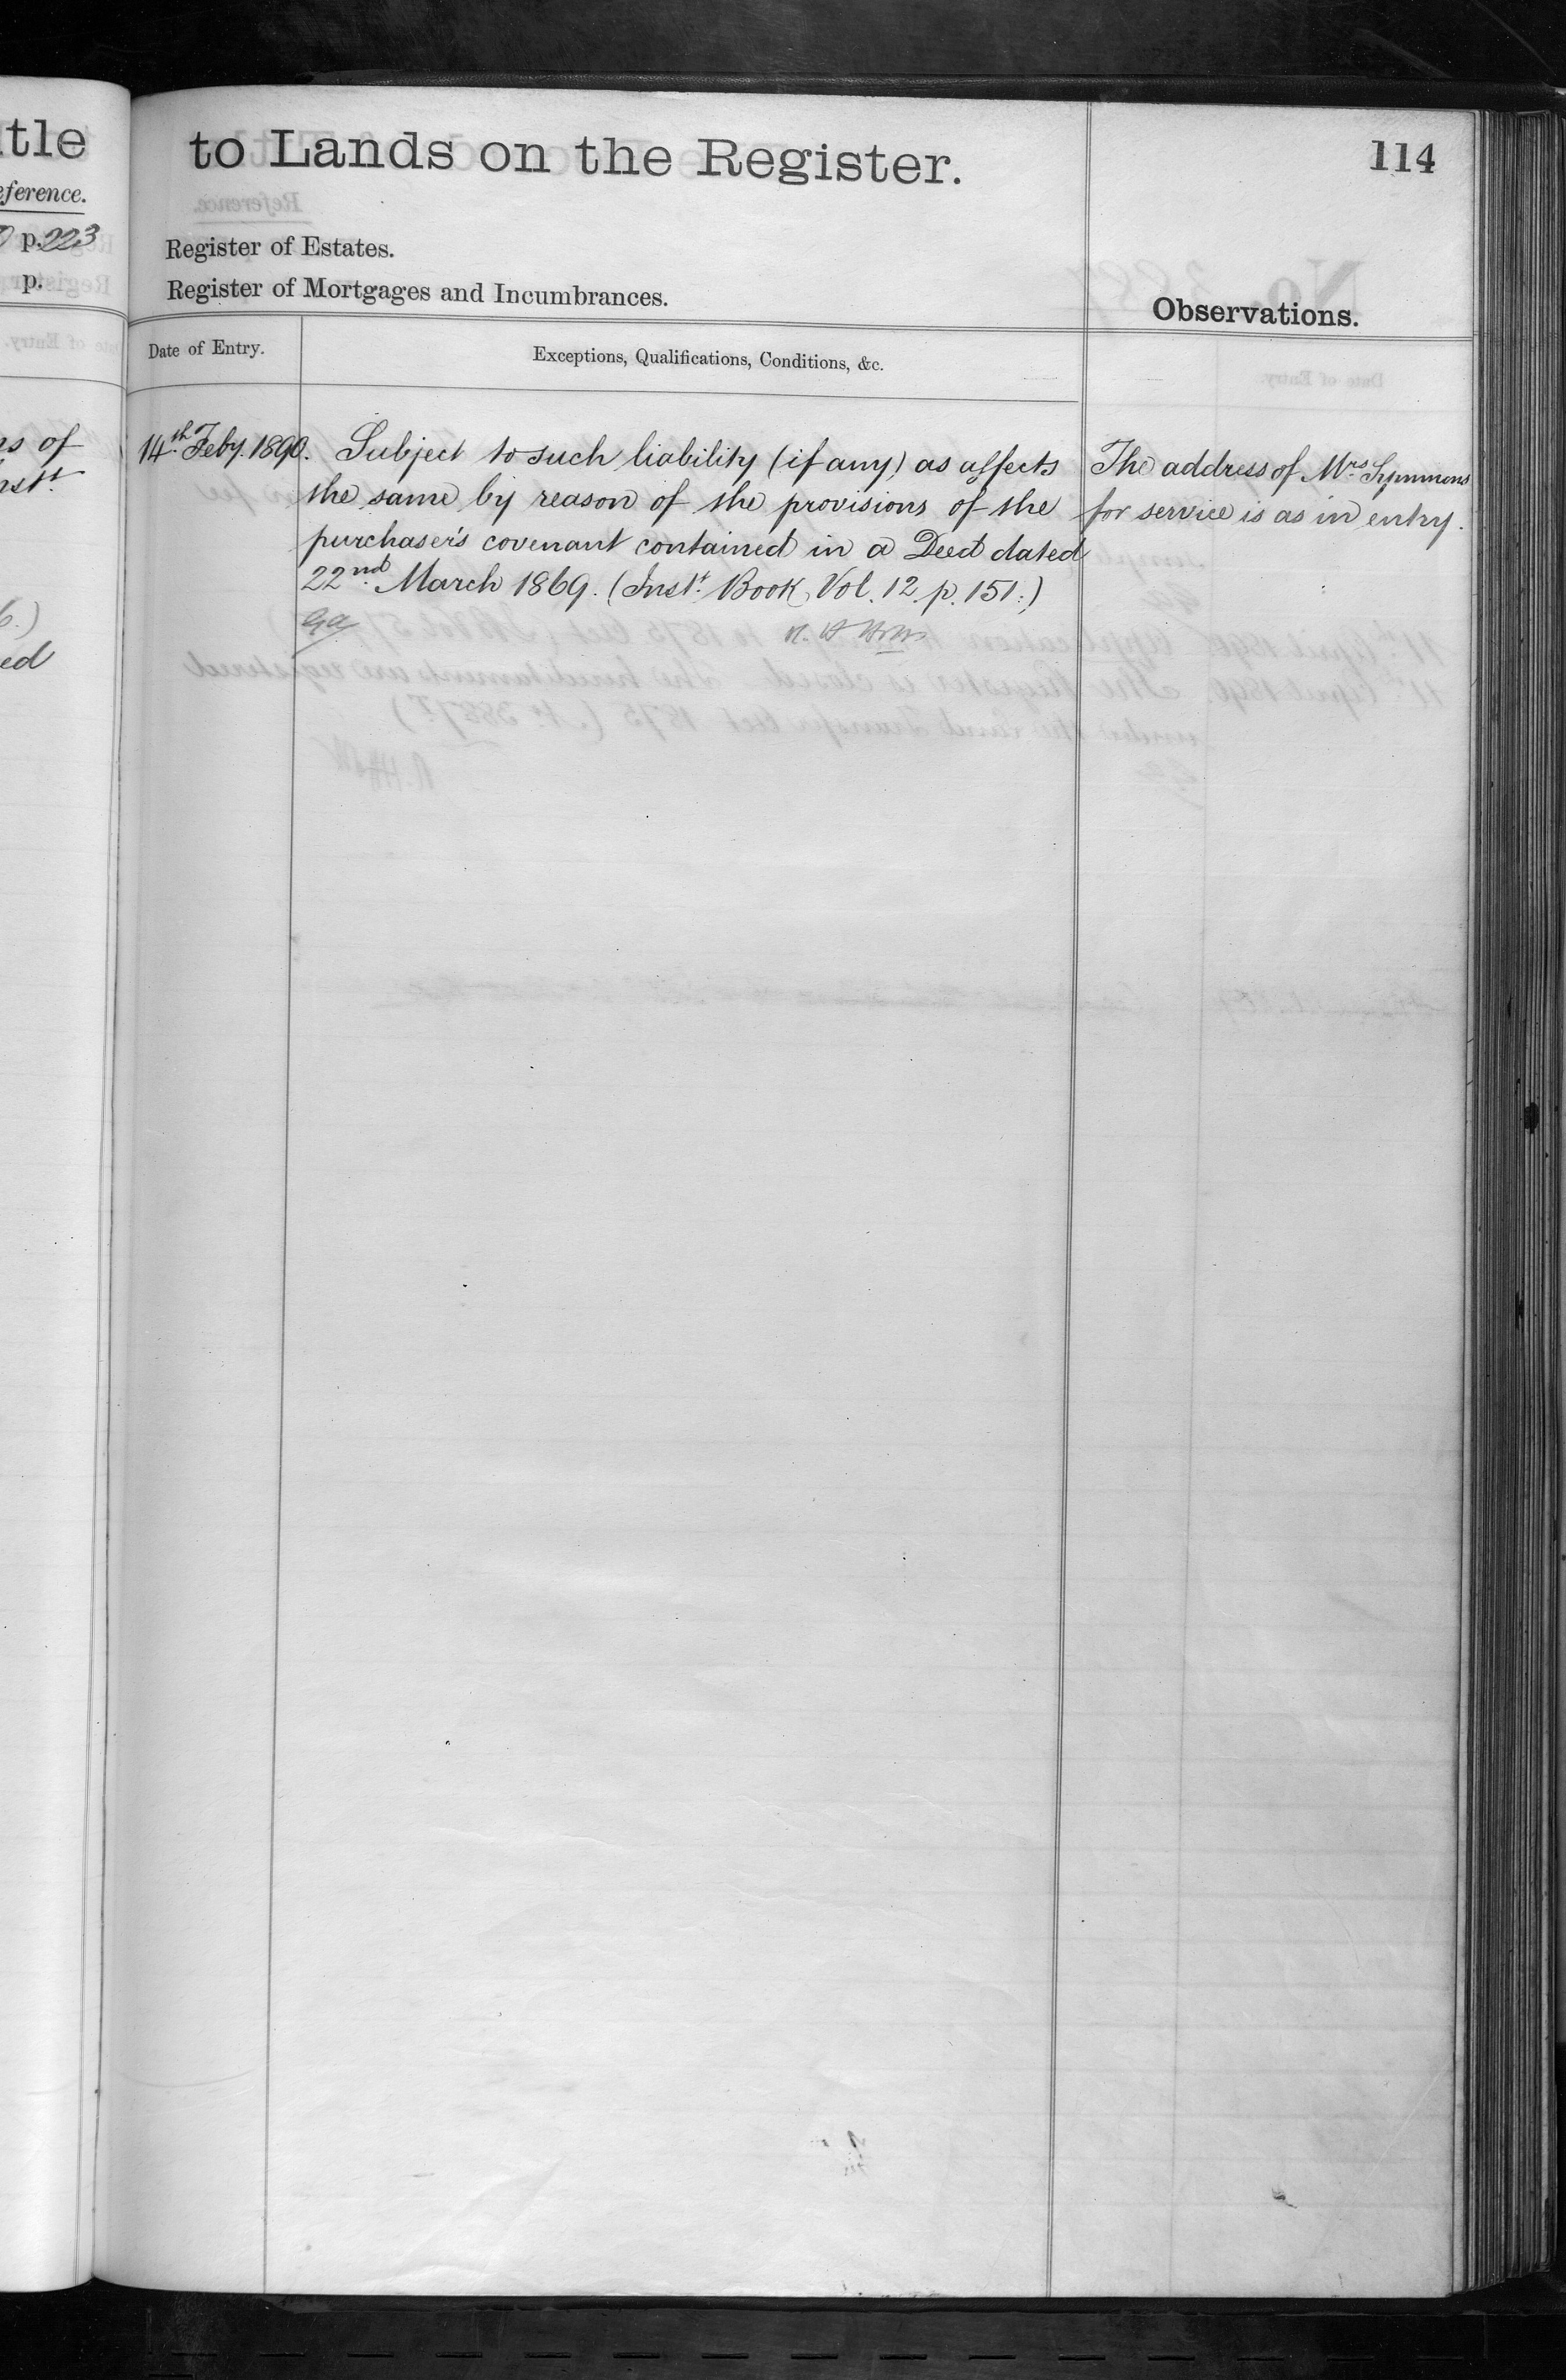 to Lands on the Register.
114
Register of Estates.
Register of Mortgages and Incumbrances.
Observations.
Date of Entry.
Exceptions, Qualifications, Conditions, &c.
14th Feby. 1890. Subject to such liability (if any) as affects
the same by reason of the provisions of the
purchaser's covenant contained in a Deed dated
22nd March 1869. (Inst. Book Vol. 12 p. 151.)
The address of Mrs Symmons
for service is as in entry.
tle
eference.
p. 223
p.
s of
nst.
6.)
ed